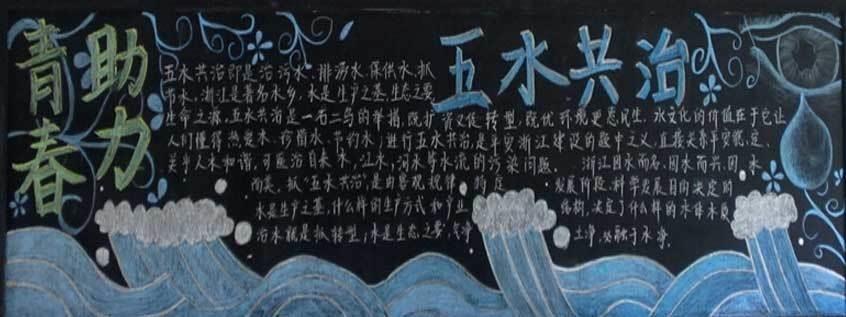 青春
助力
五水共治
五水共治即是治污水、排涝水、保供水、抓
节水。浙江是著名水乡,水是生产之基,生态之要,
生命之源。五水共治是一石二鸟的举措,既扩 资又促转型,既优环境更惠民生。水文化的价值在于它让
人们懂得热爱水、珍惜水、节约水,进行五水共治,是平安浙江建设的题中之义,直接关系平安稳定、
关乎人水和谐,可医治自来水,江水,河水等水流的污染问题。 浙江因水而名,因水而兴,因水
而美,抓“五水共治”,是由客观规律 的 发展阶段,科学发展目的决定的
水是生产之基,什么样的生产方式和产业 结构,决定了什么样的水体水质
治水就是抓转型,水是生态之要,气净 土净,必融于水净。